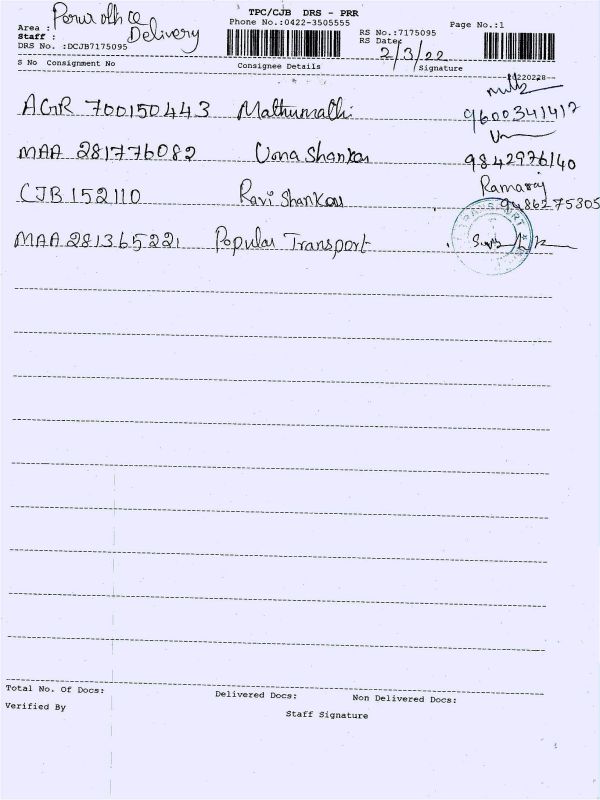 TPC/CJB DRS - PRR
Area : Perur office
Phone No.:0422-3505555
Page No.:1
Staff : Delivery
RS No.:7175095
DRS No. :DCJB7175095
RS Date: 2/3/22
S No Consignment No Consignee Details Signature
20220228
AGR 700150443 Mathumathi 9600341417
MAA 281776082 Uma Shankar 9842976140
CJB 152110 Ravi Shankar Ramaraj 9486275805
MAA 281365221 Popular Transport
Total No. Of Docs: Delivered Docs: Non Delivered Docs:
Verified By Staff Signature